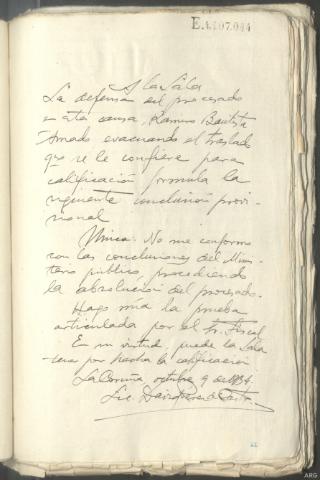 E.4.407.044
A la Sala
La defensa del procesado
en esta causa, Ramiro Bautista
Amado evacuando el traslado
que se le confiere para
calificación formula la
siguiente conclusión provi-
sional
Unica: No me conformo
con las conclusiones del Minis-
terio público, procediendo
la absolución del procesado.
Hago mía la prueba
articulada por el Sr. Fiscal
En su virtud, puede la Sala
tener por hecha la calificación
La Coruña octubre 9 de 1934.
Lic. David
ARG